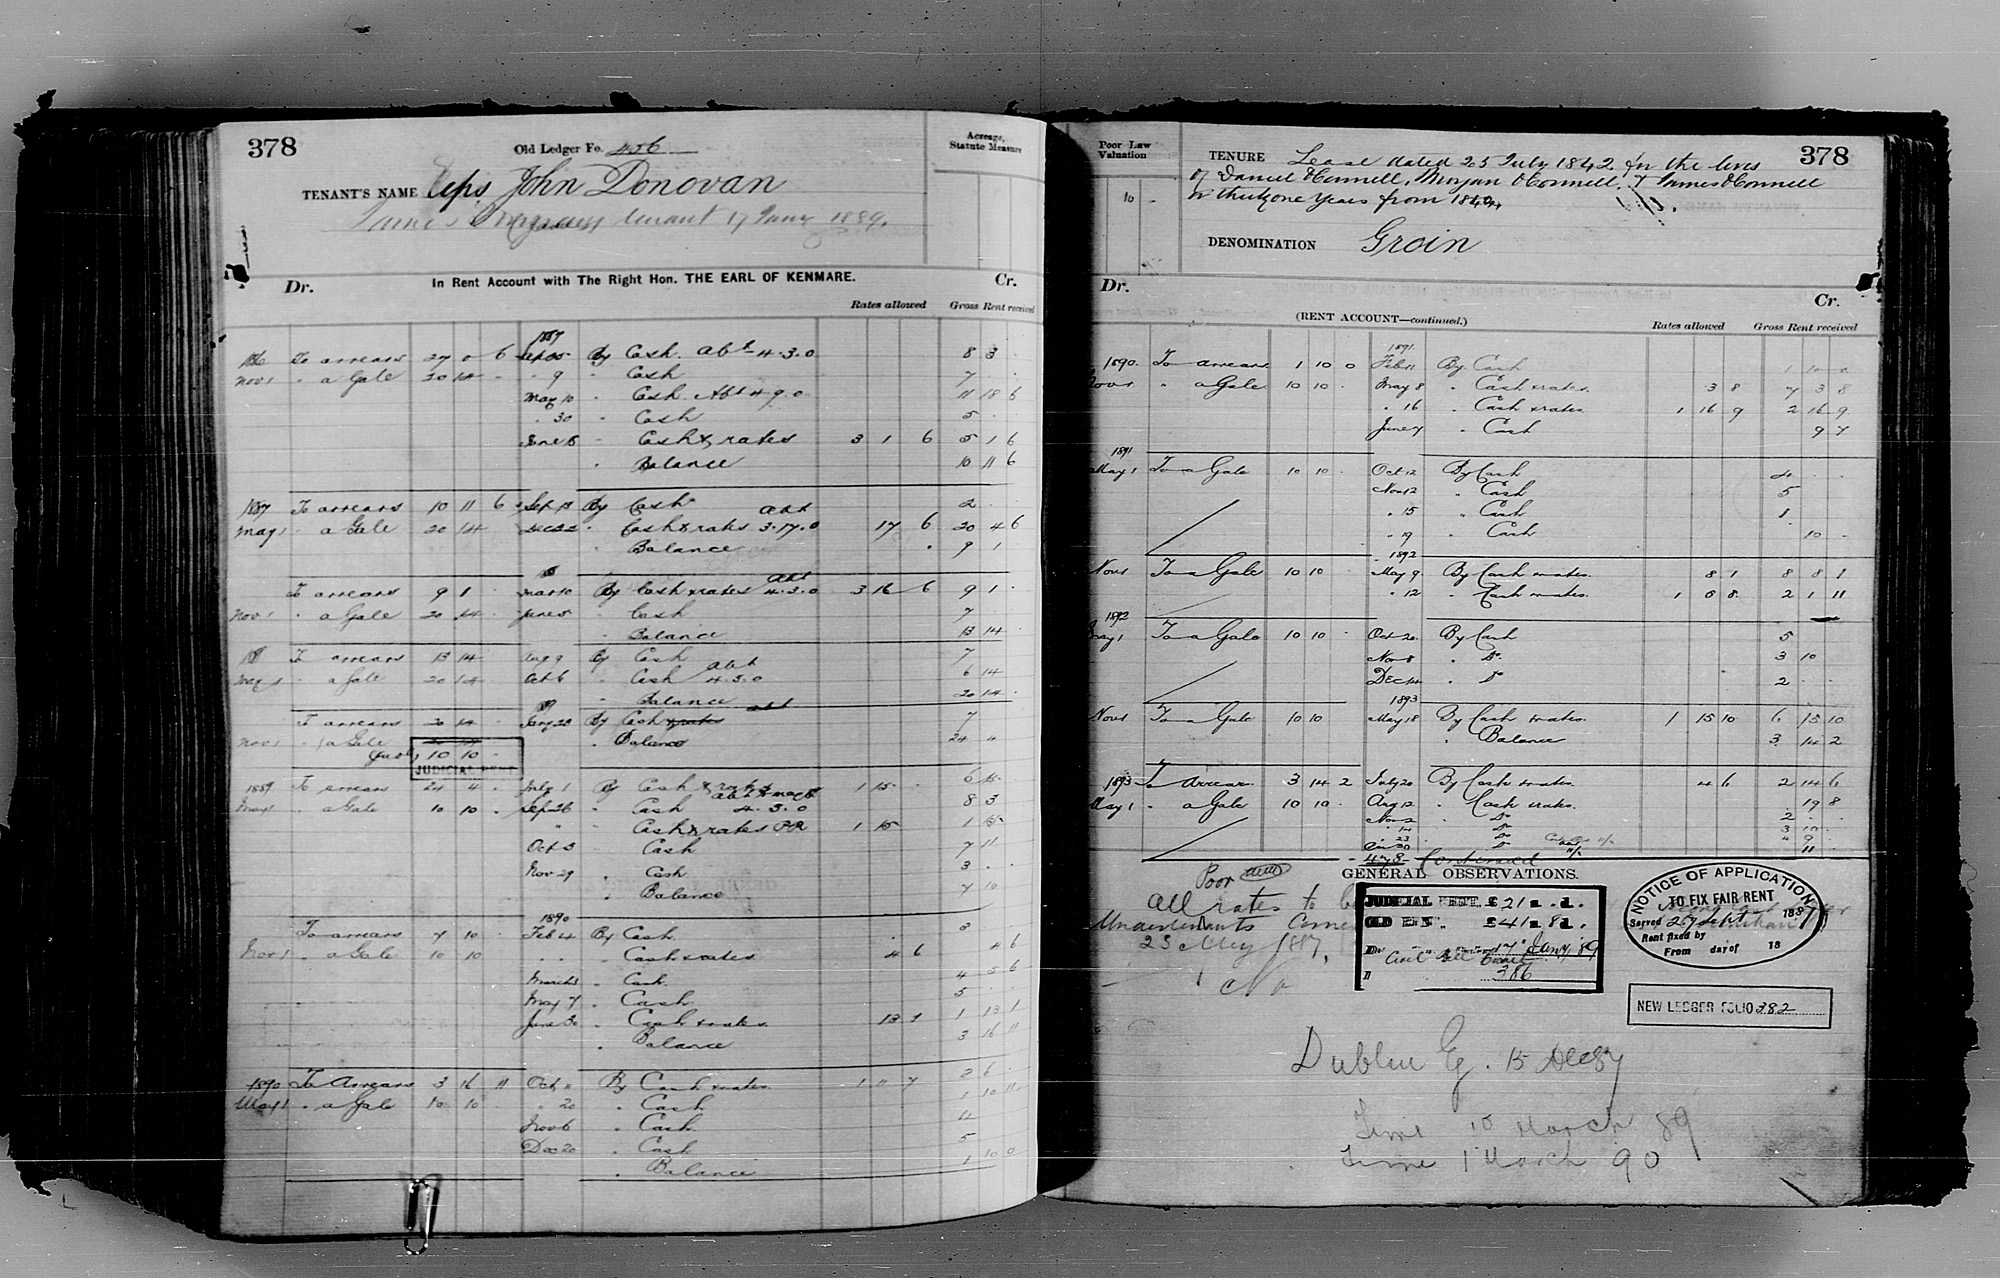 378
Old Ledger Fo. 456
Acreage, Statute Measure
TENANT'S NAME Reps John Donovan
tenant 17 Jany 1889.
Dr. In Rent Account with The Right Hon. THE EARL OF KENMARE. Cr.
Rates allowed Gross Rent received
1887
To arrears 27 0 6 By Cash. Abt 4.3.0 8 3 .
Nov 1 " a Gale 20 14 - " 9 " Cash 7 . .
May 10 " Cash Abt 4.9.0 11 18 6
" 30 " Cash 5 .
June 8 " Cash & rates 3 1 6 5 1 6
" Balance 10 11 6
1887 To arrears 10 11 6 Sep 13 By Cash 2 .
May 1 " a Gale 20 14 Dec 22 " Cash & rates abt 3.17.0 17 6 20 4 6
" Balance 9 1
To arrears 9 1 . Mar 10 By Cash & rates abt 4.3.0 3 16 6 9 1 .
Nov 1 " a Gale 20 14 June 5 " Cash 7 .
" Balance 13 14
To arrears 13 14 Aug 9 By Cash 7
May 1 " a Gale 20 14 Oct 6 " Cash abt 4.3.0 6 14
" Balance 20 14
To arrears 20 14 Jany 23 By Cash & rates 7
Nov 1 " a Gale " Balance 24 4
10 10
JUDICIAL RENT
1889 To arrears 24 4 . July 1 By Cash & rates 1 15 . 6 15
May 1 " a Gale 10 10 . Sep 26 " Cash 4.3.0 8 3
" " Cash & rates 1 15 1 15
Oct 3 " Cash 7 11
Nov 29 " Cash 3 .
" Balance 7 10
1890
To arrears 7 10 Feb 4 By Cash 3
Nov 1 " a Gale 10 10 " " " Cash & rates 4 6 4 6
March 3 " Cash 4 5 6
May 7 " Cash 5 . .
June 30 " Cash & rates 13 1 1 13 1
" Balance 3 16 11
1890 To Arrears 3 16 11 Oct By Cash & rates 1 11 7 2 6
May 1 " a Gale 10 10 . " 20 " Cash 1 10 11
Nov 6 " Cash 4
Dec 20 " Cash 5
" Balance 1 10 0
Poor Law Valuation
TENURE Lease dated 25 July 1842 for the lives 378
of Daniel O'Connell, Morgan O'Connell, & James O'Connell
or thirty one years from 1842
DENOMINATION Groin
Dr. Cr.
(RENT ACCOUNT—continued.) Rates allowed Gross Rent received
1891
1890. To arrears 1 10 0 Feb 11 By Cash 1 10 0
Nov 1 " a Gale 10 10 . May 8 " Cash & rates. 3 8 7 3 8
" 16 " Cash & rates 1 16 9 2 16 9
June 7 " Cash 9 7
1891
May 1 To a Gale 10 10 . Oct 12 By Cash 4 . .
Nov 12 " Cash 5
" 15 " Cash 1
" 19 " Cash 10 -
1892
Nov 1 To a Gale 10 10 May 9 By Cash & rates. 8 1 8 8 1
" 12 " Cash & rates. 1 8 2 1 11
1892
May 1 To a Gale 10 10 . Oct 20 By Cash 5
Nov 8 " Do 3 10
Dec 14 " Do 2 .
1893
Nov 1 To a Gale 10 10 May 18 By Cash & rates. 1 15 10 6 15 10
" Balance 3 14 2
1893 To Arrears 3 14 2 July 20 By Cash & rates. 4 6 2 14 6
May 1 " a Gale 10 10 . Aug 12 " Cash & rates. 19 8
Nov 2 " Do 2 .
" 14 " Do 3 10
" 23 " Do 4 9
" 30 " Do 11
478 Continued
GENERAL OBSERVATIONS.
Poor
All rates to
Undertenants
23 May 1887.
No
JUDICIAL RENT £21 s. d.
OLD RENT £41 s. 8 d.
17 Jany '89
Civil Bill Court
386
NOTICE OF APPLICATION
TO FIX FAIR RENT
Served 27 Sept 1887
Rent fixed by
From day of 18
NEW LEDGER FOLIO 382
Dublin G. 15 Dec 87
Time 10 March 89
Time 1 March 90